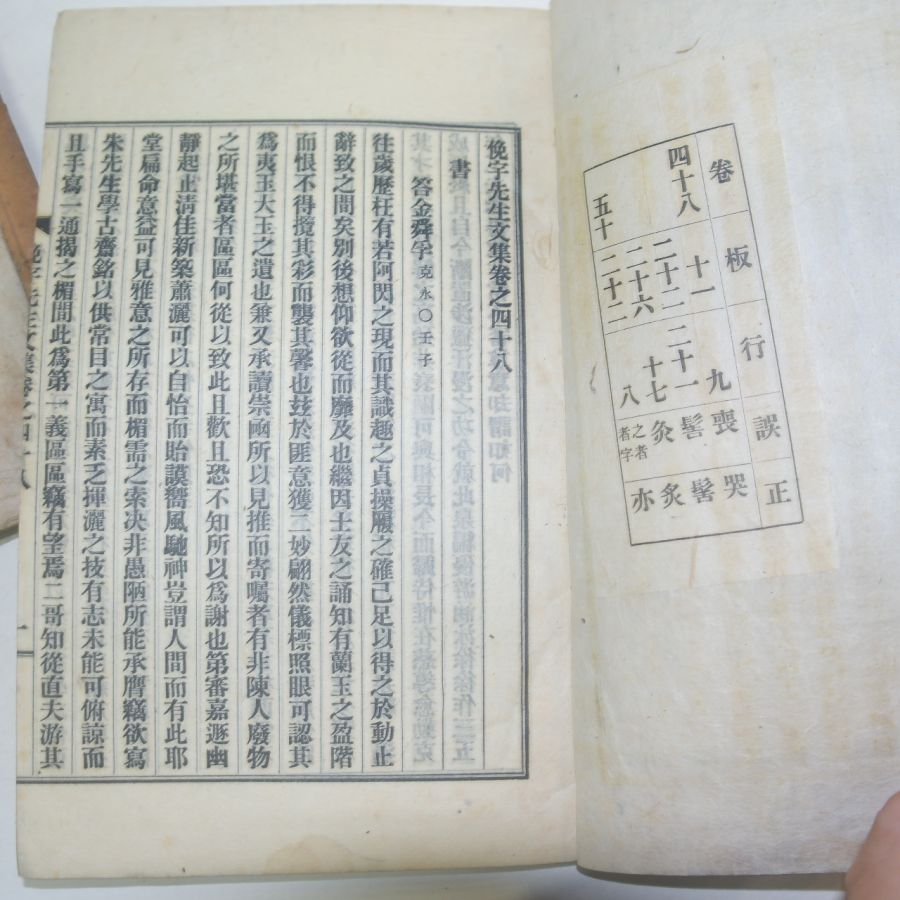 卷 板 行 誤 正
四十八 十一 九 喪 哭
二十二 二十一 髻
二十六 十七 灸 炙
五十 二十二 八 亦
俛宇先生文集卷之四十八
書
答金舜孚 克永○壬子
往歲歷枉有若阿閃之現而其識趣之貞操履之確已足以得之於動止
辭致之間矣別後想仰欲從而靡及也繼因士友之誦知有蘭玉之盈階
而恨不得攬其彩而襲其馨也玆於匪意獲二妙翩然儀標照眼可認其
爲夷玉大玉之遺也兼又承讀崇函所以見推而寄囑者有非陳人廢物
之所堪當者區區何從以致此且歡且恐不知所以爲謝也第審嘉遯幽
靜起止淸佳新築蕭灑可以自怡而貽謨嚮風馳神豈謂人間而有此耶
堂扁命意益可見雅意之所存而楣需之索决非愚陋所能承膺竊欲寫
朱先生學古齋銘以供常目之寓而素乏揮灑之技有志未能可俯諒而
且手寫一通揭之楣間此爲第一義區區竊有望焉二哥知從直夫游其
俛宇先生文集卷之四十八
一